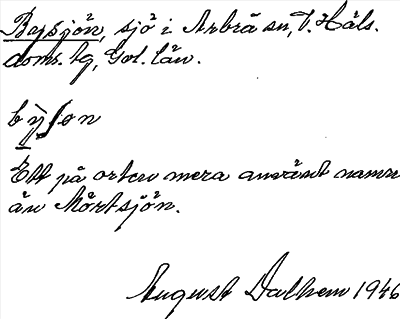 Bysjön, sjö i Arbrå sn, V. Häls.
doms. tg, Gvl. län.
bỳʃon
Ett på orten mera använt namn
än Mörtsjön.
August Dalhem 1946